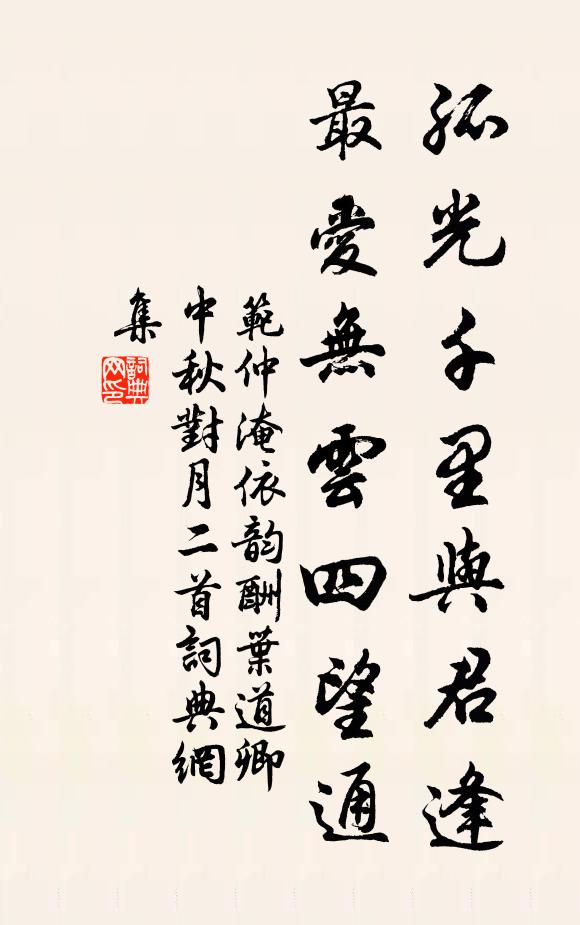 孤光千里與君逢
最愛無雲四望通
範仲淹依韵酬葉道卿
中秋對月二首詞典網
集
詞典
网印